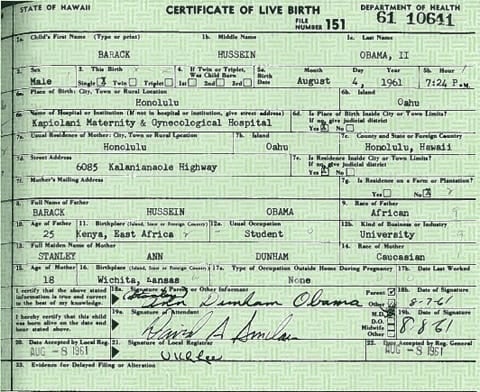 STATE OF HAWAII CERTIFICATE OF LIVE BIRTH DEPARTMENT OF HEALTH
FILE NUMBER 151 61 10641
1a. Child's First Name (Type or print) 1b. Middle Name 1c. Last Name
BARACK HUSSEIN OBAMA, II
2. Sex 3. This Birth 4. If Twin or Triplet, Was Child Born 5a. Birth Date Month Day Year 5b. Hour
Male Single Twin Triplet 1st 2nd 3rd August 4, 1961 7:24 P.M.
6a. Place of Birth: City, Town or Rural Location 6b. Island
Honolulu Oahu
6c. Name of Hospital or Institution (If not in hospital or institution, give street address) 6d. Is Place of Birth Inside City or Town Limits? If no, give judicial district
Kapiolani Maternity & Gynecological Hospital Yes No
7a. Usual Residence of Mother: City, Town or Rural Location 7b. Island 7c. County and State or Foreign Country
Honolulu Oahu Honolulu, Hawaii
7d. Street Address 7e. Is Residence Inside City or Town Limits? If no, give judicial district
6085 Kalanianaole Highway Yes No
7f. Mother's Mailing Address 7g. Is Residence on a Farm or Plantation?
Yes No
8. Full Name of Father 9. Race of Father
BARACK HUSSEIN OBAMA African
10. Age of Father 11. Birthplace (Island, State or Foreign Country) 12a. Usual Occupation 12b. Kind of Business or Industry
25 Kenya, East Africa Student University
13. Full Maiden Name of Mother 14. Race of Mother
STANLEY ANN DUNHAM Caucasian
15. Age of Mother 16. Birthplace (Island, State or Foreign Country) 17a. Type of Occupation Outside Home During Pregnancy 17b. Date Last Worked
18 Wichita, Kansas None
I certify that the above stated information is true and correct to the best of my knowledge. 18a. Signature of Parent or Other Informant Parent Other 18b. Date of Signature
(Stanley) Ann Dunham Obama 8-7-61
I hereby certify that this child was born alive on the date and hour stated above. 19a. Signature of Attendant M.D. D.O. Midwife Other 19b. Date of Signature
David A Sinclair 8-8-61
20. Date Accepted by Local Reg. 21. Signature of Local Registrar 22. Date Accepted by Reg. General
AUG -8 1961 AUG -8 1961
23. Evidence for Delayed Filing or Alteration